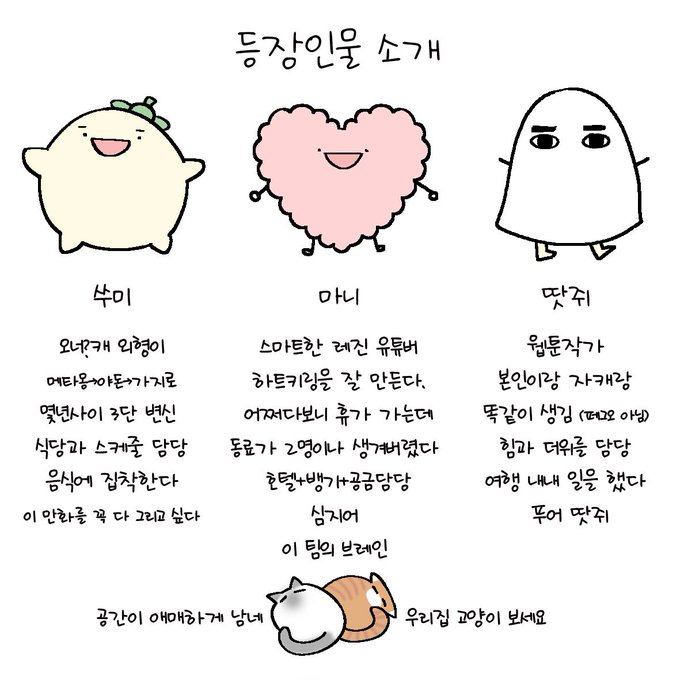 등장인물 소개
쑤미
오너?캐 외형이
메타몽→야돈→가지로
몇년사이 3단 변신
식당과 스케줄 담당
음식에 집착한다
이 만화를 꼭 다 그리고 싶다
마니
스마트한 레진 유튜버
하트키링을 잘 만든다.
어쩌다보니 휴가 가는데
동료가 2명이나 생겨버렸다
호텔+뱅기+공금담당
심지어
이 팀의 브레인
땃쥐
웹툰작가
본인이랑 자캐랑
똑같이 생김 (페그오 아님)
힘과 더위를 담당
여행 내내 일을 했다
푸어 땃쥐
공간이 애매하게 남네
우리집 고양이 보세요